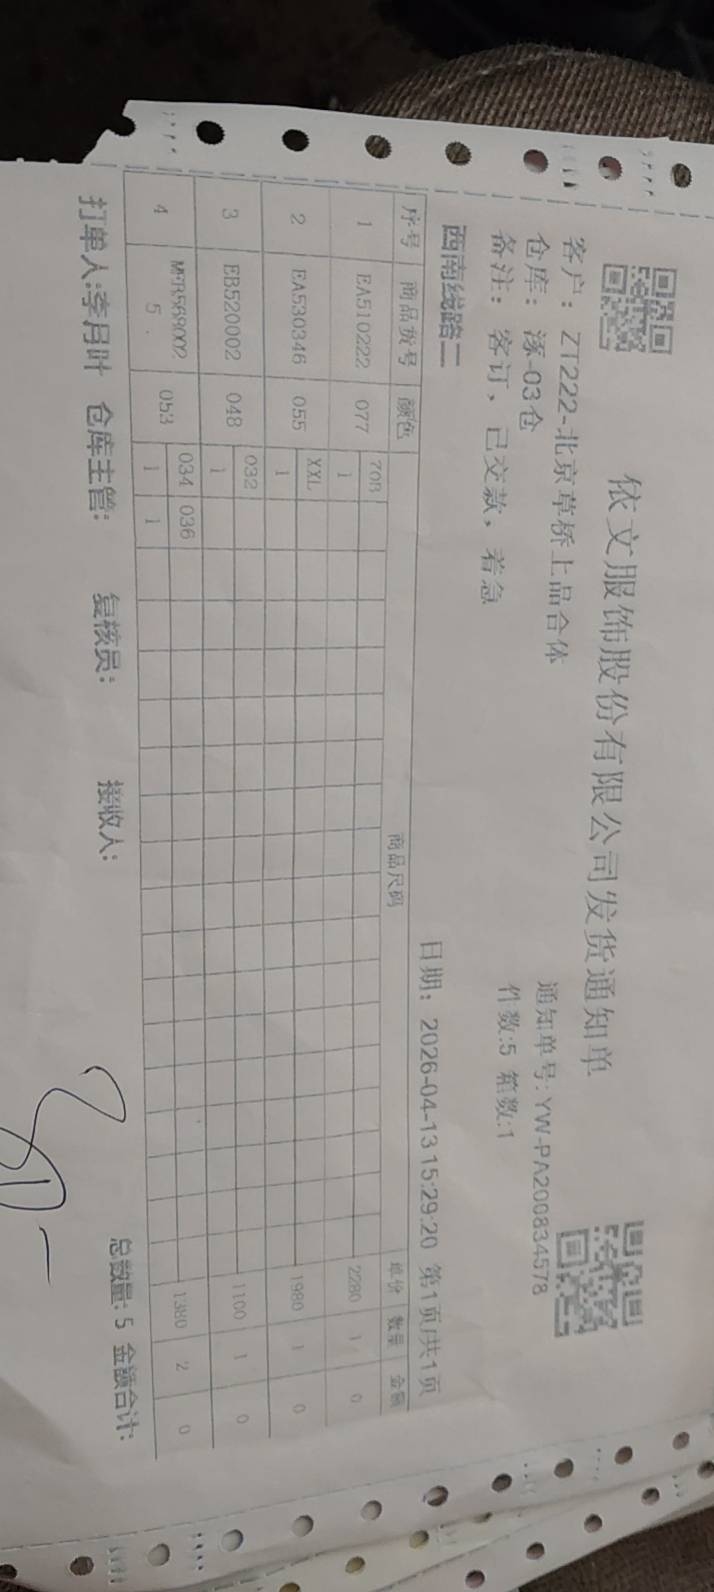 依文服饰股份有限公司发货通知单
客户：ZT222-北京草桥上品合体
通知单号:YW-PA200834578
仓库：涿-03仓
件数:5 箱数:1
备注：客订，已交款，着急
西南线路二
日期：2026-04-13 15:29:20 第1页/共1页
序号 商品货号 颜色 商品尺码 单价 数量 金额
1 EA510222 077 70B 2280 1 0
1
2 EA530346 055 XXL 1980 1 0
1
3 EB520002 048 032 1100 1 0
1
4 053 034 036 1380 2 0
5 1 1
总数量: 5 金额合计:
打单人:李月叶 仓库主管: 复核员: 接收人: